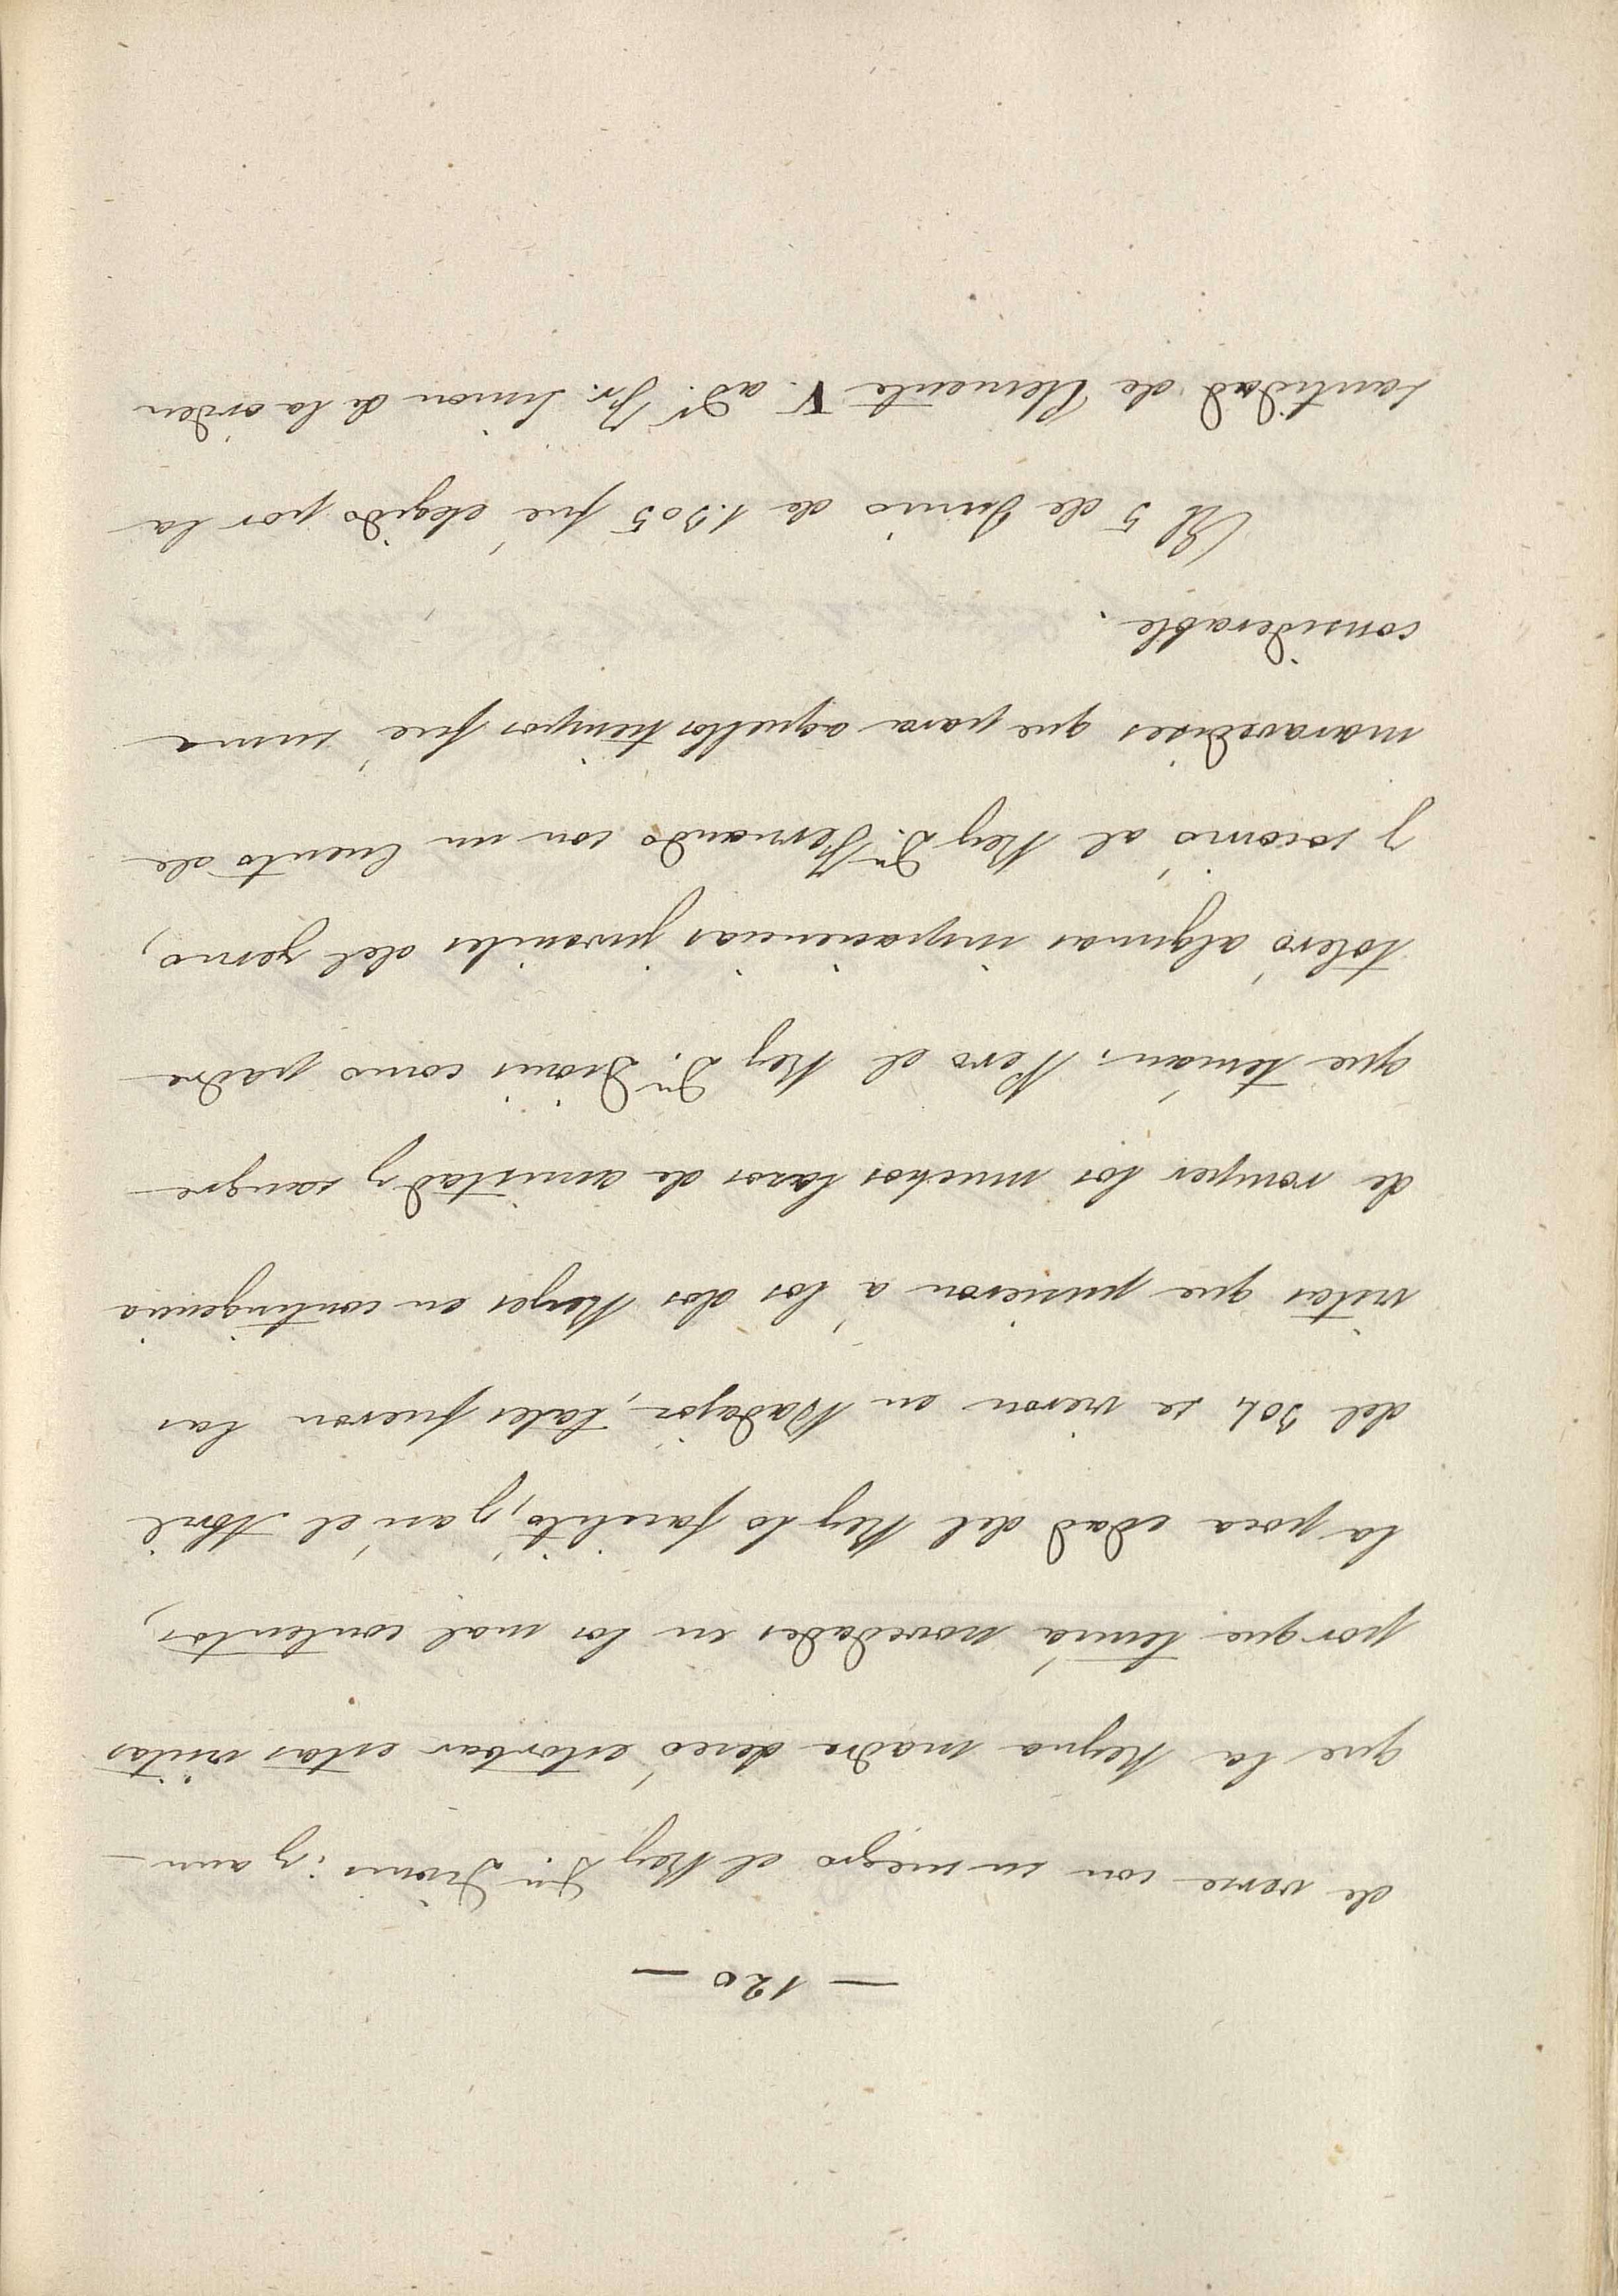 — 120 —
de verse con su suegro el Rey D.n Dionis: y aun—
que la Reyna madre deseó estorbar estas vistas
porque temía novedades en los mal contentos,
la poca edad del Rey lo facilitó, y así el Abril
del 304 se vieron en Badajoz, tales fueron las
vistas que pusieron á los dos Reyes en contingencia
de romper los muchos lazos de amistad y sangre
que tenían. Pero el Rey D.n Dionis como padre
toleró algunas impaciencias juveniles del yerno,
y socorrió al Rey D.n Fernando con un Cuento de
maravedises que para aquellos tiempos fué suma
considerable.
El 5 de Junio de 1.305 fué elegido por la
santidad de Clemente V. a D.n Fr. Simon de la orden